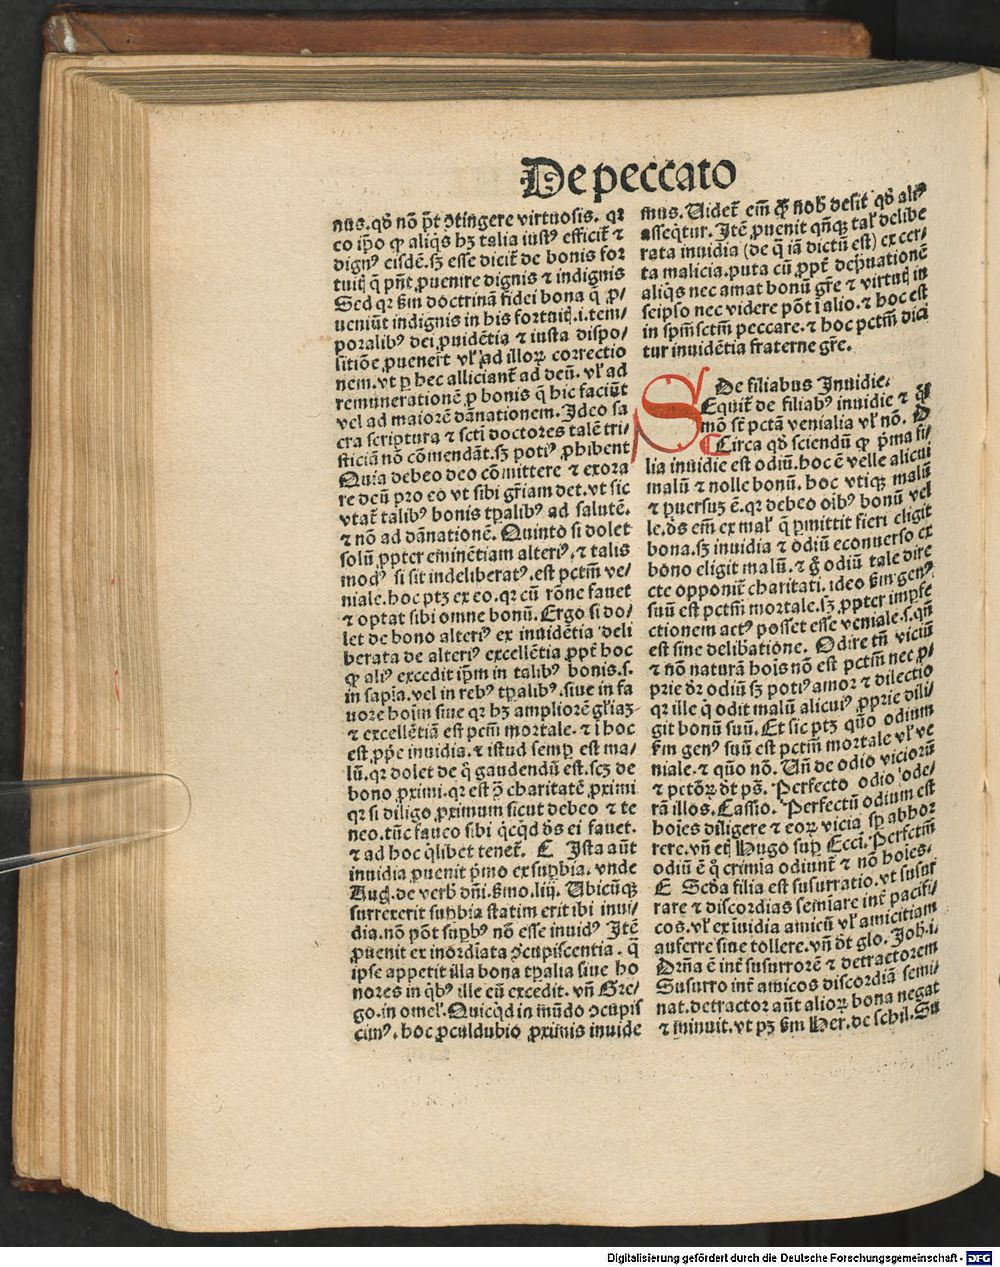 De peccato
nus. qđ nō p̄t ↄ̄tingere virtuosis. qꝛ
eo ip̄o ꝙ aliq̇s hꝫ talia iustꝰ efficit̄ ⁊
dignꝰ eisdē. sꝫ esse dicit̄ de bonis for
tuitꝭ q̄ pn̄t ꝓuenire dignis ⁊ indignis
Sed qꝛ ẜm doctrinā fidei bona q̄ ꝓ/
ueniūt indignis in his fortuitꝭ .i. tem/
poralibꝰ dei ꝓuidētia ⁊ iusta dispo/
sitiōe ꝓuener̄t vl̓ ad illoꝝ correctio
nem. vt ꝑ hec alliciant̄ ad deū. vl̓ ad
remunerationē ꝓ bonis q̄ hic faciūt
vel ad maiorē dānationem. Ideo sa
cra scriptura ⁊ sctī doctores talē tri/
sticiā nō cōmendāt. sꝫ potiꝰ ꝓhibent
Quia debeo deo cōmittere ⁊ exora
re deū pro eo vt sibi gr̄iam det. vt sic
vtat̄ talibꝰ bonis tꝑalibꝰ ad salutē.
⁊ nō ad dānationē. Quinto si dolet
solū ꝓpter eminētiam alteriꝰ. ⁊ talis
modꝰ si sit indeliberatꝰ. est pctm̄ ve/
niale. hoc ptꝫ ex eo. qꝛ cū rōne fauet
⁊ optat sibi omne bonū. Ergo si do/
let de bono alteriꝰ ex inuidētia deli
berata de alteriꝰ excellētia ꝓpt̄ hoc
ꝙ aliꝰ excedit ip̄m in talibꝰ bonis. s.
in sapīa. vel in rebꝰ tꝑalibꝰ. siue in fa
uore hoīm siue qꝛ hꝫ ampliorē gr̄iaꝫ
⁊ excellētiā est pctm̄ mortale. ⁊ ī hoc
est ꝓp̄e inuidia. ⁊ istud semꝑ est ma/
lū. qꝛ dolet de q̊ gaudendū est. scꝫ de
bono ꝓximi. qꝛ est ↄ̄ charitatē ꝓximi
qꝛ si diligo ꝓximum sicut debeo ⁊ te
neo. tūc faueo sibi q̇cq̇d de᷒ ei fauet.
⁊ ad hoc q̇libet tenet̄. ℂ Ista aūt
inuidia ꝓuenit p̄mo ex suꝑbia. vnde
Aug. de verb̓ dn̄i. ẜmo. liij. Ubicūqꝫ
surrexerit suꝑbia statim erit ibi inui/
dia. nō pōt suꝑbꝰ nō esse inuidꝰ Itē
ꝓuenit ex inordīata ↄ̄cupiscentia. q̄
ipse appetit illa bona tꝑalia siue ho
nores in q̇bꝰ ille eū excedit. vn̄ Gre/
go. in omel̓. Quicq̇d in mūdo ↄ̄cupis
cimꝰ. hoc ꝓculdubio ꝓximis inuide
mus. Uidet̄ em̄ ꝙ nob̓ desit qđ aliꝰ
asseq̇tur. Itē ꝓuenit qn̄qꝫ tal̓ delibe
rata inuidia (de q̄ iā dictū est) ex cer/
ta malicia. puta cū ꝓpt̄ deprauationē
aliq̇s nec amat bonū gr̄e ⁊ virtutꝭ in
seipso nec videre pōt ī alio. ⁊ hoc est
in spm̄sctm̄ peccare. ⁊ hoc pctm̄ dici
tur inuidētia fraterne gr̄e.
De filiabus Inuidie.
SEquit̄ de filiabꝰ inuidie ⁊ quō
st̄ pctā venialia vl̓ nō.
ℂ Circa qđ sciendū ꝙ p̄ma fi/
lia inuidie est odiū. hoc ē velle alicui
malū ⁊ nolle bonū. hoc vtiqꝫ malū
⁊ ꝑuersuꝫ ē. qꝛ debeo oībꝰ bonū vel
le. de᷒ em̄ ex mal̓ q̄ ꝑmittit fieri eligit
bona. sꝫ inuidia ⁊ odiū econuerso ex
bono eligit malū. ⁊ g̊ odiū tale dire
cte opponit̄ charitati. ideo ẜm genꝰ
suū est pctm̄ mortale. sꝫ ꝓpter imꝑfe
ctionem actꝰ posset esse veniale. s. qn̄
est sine delib̓atione. Odire tn̄ viciū
⁊ nō naturā hoīs nō est pctm̄ nec ꝓ/
prie dr̄ odiū sꝫ potiꝰ amor ⁊ dilectio
qꝛ ille q̇ odit malū alicuiꝰ ꝓprie dili/
git bonū suū. Et sic ptꝫ quō odium
ẜm genꝰ suū est pctm̄ mortale vl̓ ve
niale. ⁊ quō nō. Un̄ de odio vicioꝝ
⁊ pctōꝝ dt̄ ps̄. Perfecto odio ode/
rā illos. Cassio. Perfectū odium est
hoīes diligere ⁊ eoꝝ vicia sꝑ abhor
rere. vn̄ etꝭ Hugo suꝑ Ecci. Perfctm̄
odiū ē q̊ crimīa odiunt̄ ⁊ nō hoīes.
ℂ Scđa filia est susurratio. vt susur
rare ⁊ discordias semīare int̄ pacifi/
cos. vl̓ ex īuidia amicū vl̓ amicitiam
auferre siue tollere. vn̄ dt̄ glo. Joh. i.
Dr̄na ē int̄ susurrorē ⁊ detractorem
Susurro int̄ amicos discordiā semi/
nat. detractor aūt alioꝝ bona negat
⁊ minuit. vt pꝫ ẜm Her. de schil. Su
Digitalisierung gefördert durch die Deutsche Forschungsgemeinschaft - DFG